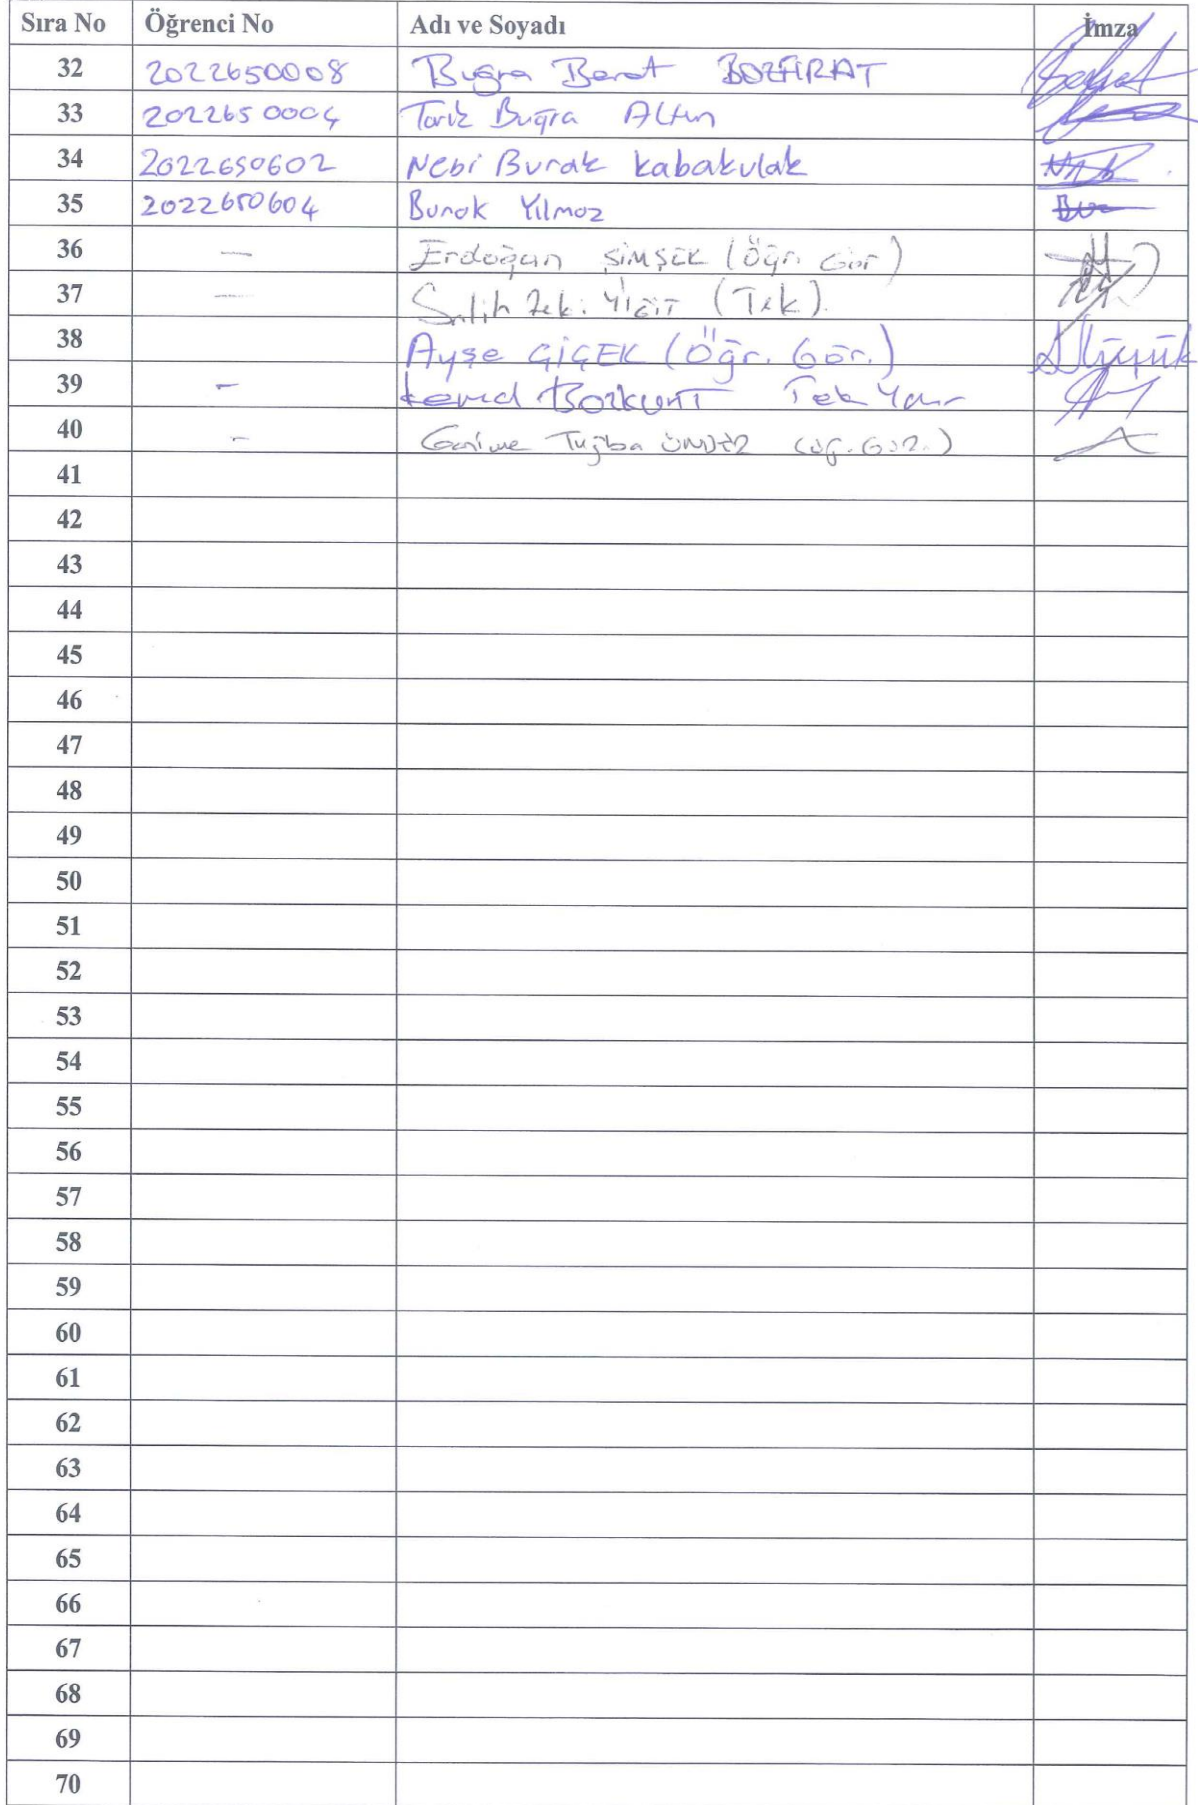 Sıra No Öğrenci No Adı ve Soyadı İmza
32 2022650008 Buğra Berat BOZFIRAT
33 2022650004 Tarık Buğra Altın
34 2022650602 Nebi Burak Kabakulak
35 2022650604 Burak Yılmaz
36 — Erdoğan ŞİMŞEK (Öğr. Gör)
37 — Salih Zeki YİĞİT (Tek).
38 Ayşe ÇİÇEK (Öğr. Gör.)
39 - Bozkurt
40 - Tuğba ÖNDER (Öğ. GÖR.)
41
42
43
44
45
46
47
48
49
50
51
52
53
54
55
56
57
58
59
60
61
62
63
64
65
66
67
68
69
70